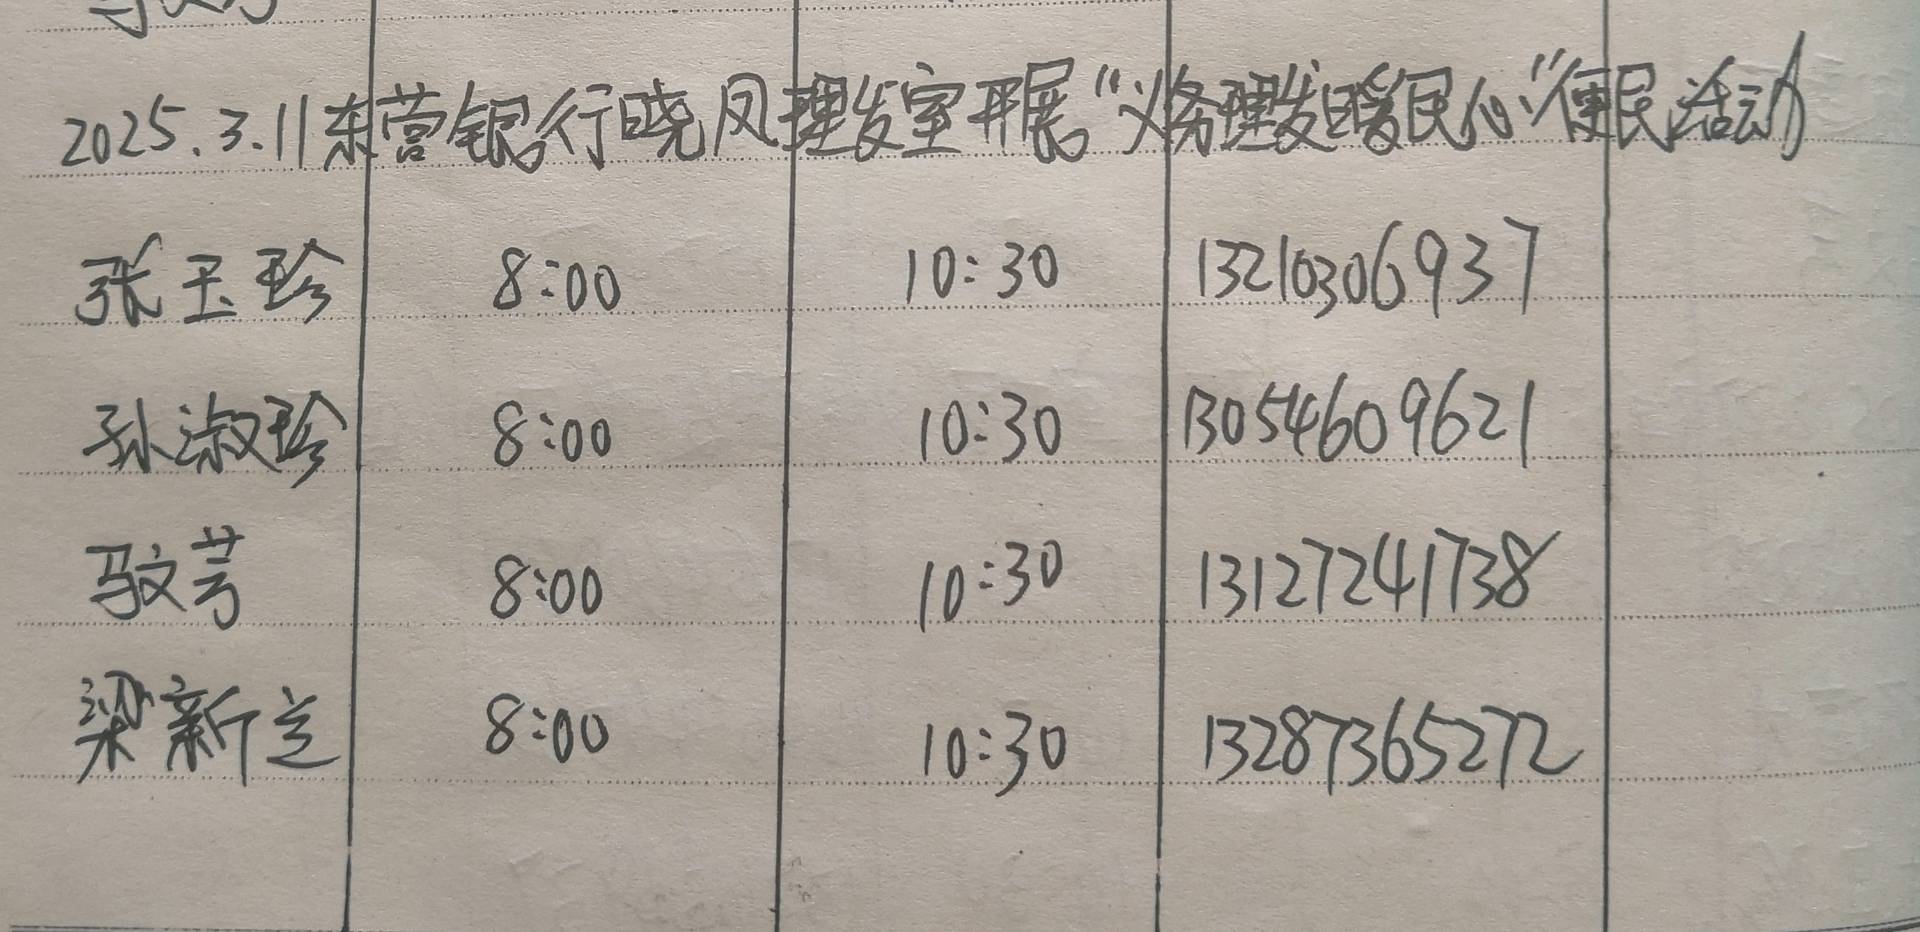 2025.3.11东营银行晓凤理发室开展“义务理发暖民心”便民活动
张玉珍 8:00 10:30 13210306937
孙淑珍 8:00 10:30 13054609621
马文芳 8:00 10:30 13127241738
梁新兰 8:00 10:30 13287365272